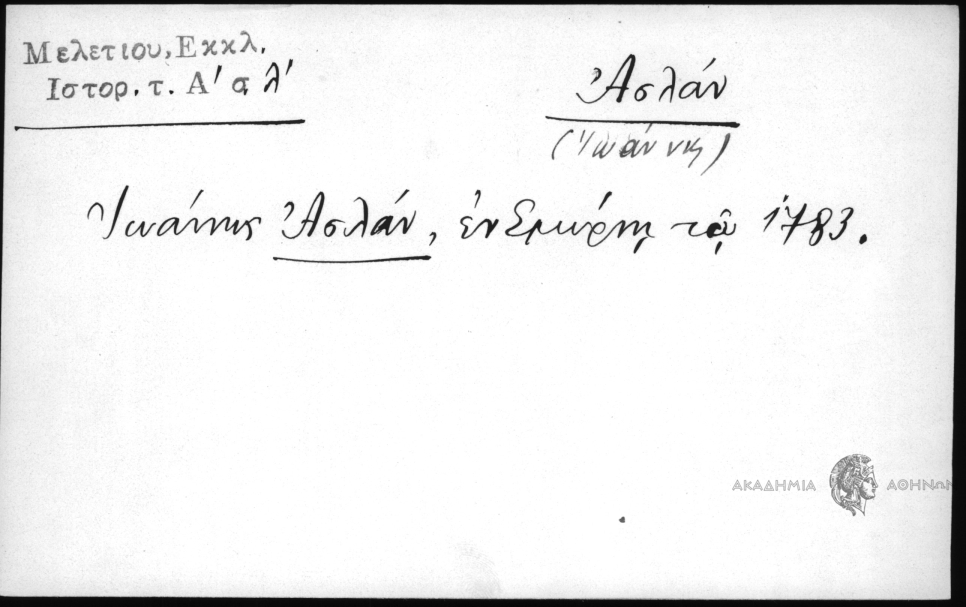 Μελετιου, Εκκλ.
Ιστορ. τ. Α' σ. λ'
Ἀσλάν
(Ἰωάννης)
Ἰωάννης Ἀσλάν, ἐν Σμύρνῃ τῷ 1783.
ΑΚΑΔΗΜΙΑ ΑΘΗΝΩΝ